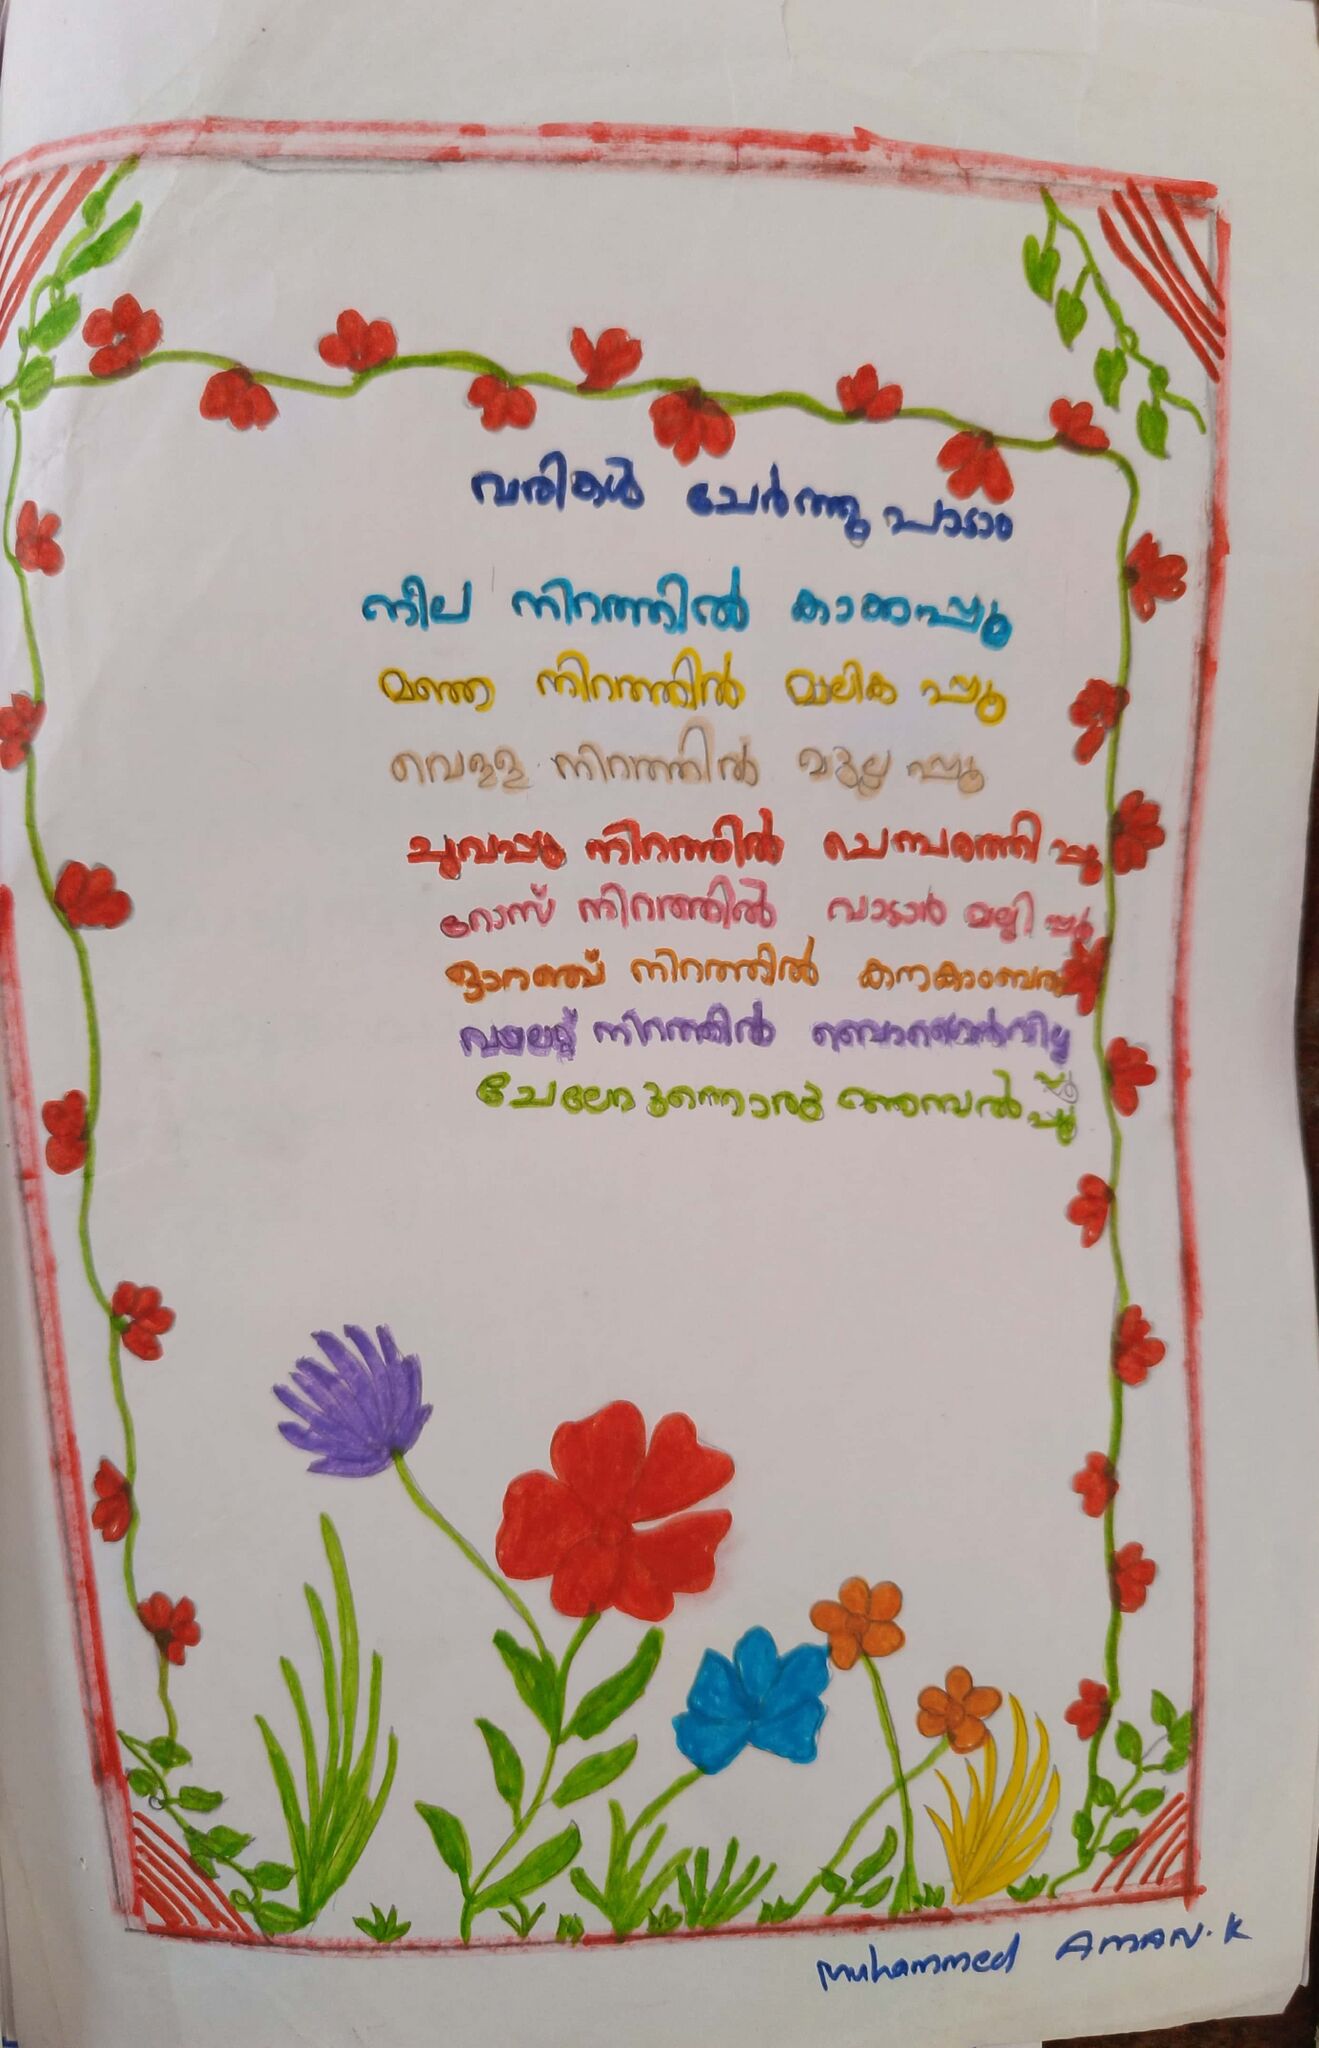 വരികൾ ചേർത്തു പാടാം
നീല നിറത്തിൽ കാക്കപ്പൂ
മഞ്ഞ നിറത്തിൽ മാലിക പ്പൂ
വെള്ള നിറത്തിൽ മുല്ല പ്പൂ
ചുവപ്പു നിറത്തിൽ ചെമ്പരത്തി പ്പൂ
റോസ് നിറത്തിൽ വാടാർ മല്ലി പ്പൂ
ഓറഞ്ച് നിറത്തിൽ കനകാംബരം
വയലറ്റ് നിറത്തിൽ
ചേലേറുന്നൊരു ആമ്പൽ പ്പൂ
Muhammed Aman.K